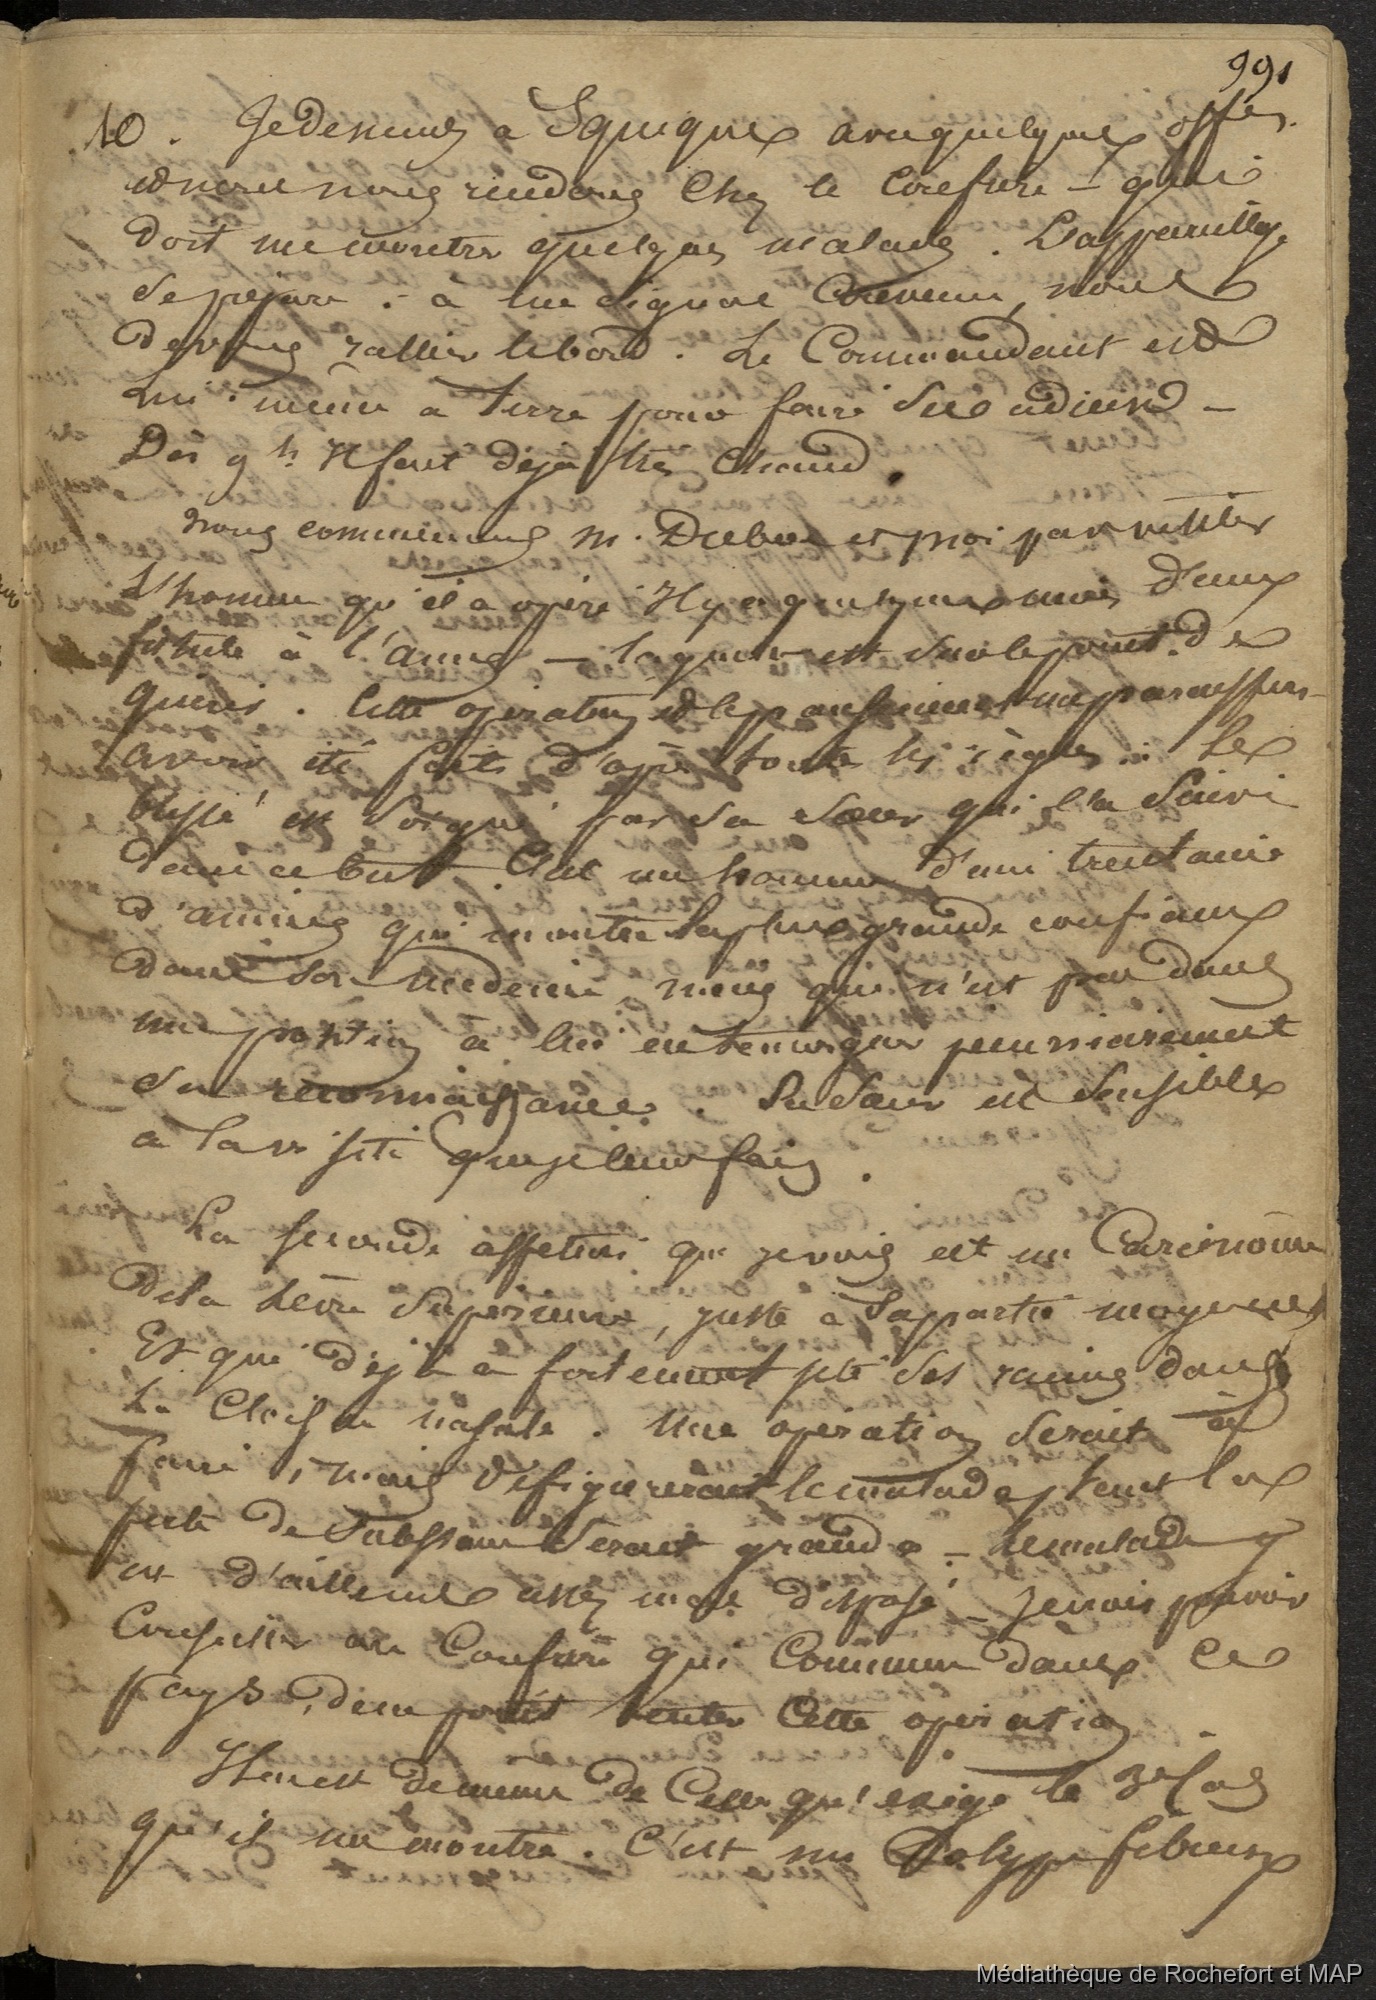 991
10. Je descends à Iquique avec quelques offers.
et nous nous rendons chez le Confrère – qui
doit me montrer quelques malades. L'appareillage
se prépare. à un signal convenu, nous
devons rallier le bord. Le Commandant est
lui-même à terre pour faire ses adieux –
Dès 9 h. Il fait déjà très chaud.
Nous commençons M. Dubois et moi par visiter
L'homme qu'il a opéré il y a quelques mois d'une
fistule à l'anus – laquelle est sur le point de
guérir. Cette opération et le pansement me paraissent
avoir été faits d'après toutes les règles. Le
blessé est soigné par sa soeur qui l'a suivi
dans ce but. C'est un homme d'une trentaine
d'années qui montre la plus grande confiance
dans son médecin, mais qui n'est pas dans
une position à lui en témoigner pécuniairement
sa reconnaissance. Sa soeur est sensible
à la visite que je leur fais.
La seconde affection que je vois est un Carcinôme
de la lèvre supérieure, juste à la partie moyenne
Et qui déjà a fortement jeté des racines dans
la cloison nasale. Une opération serait à
faire, mais défigurerait le malade, tant la
perte de substance serait grande – Le malade y
est d'ailleurs assez mal disposé – Je crois pouvoir
conseiller au Confrère qui commence dans ce
pays, de ne point tenter cette opération
Il en est de même de celle qu'exige le 3e cas
qu'il me montre. C'est un Polype fibreux
Médiathèque de Rochefort et MAP